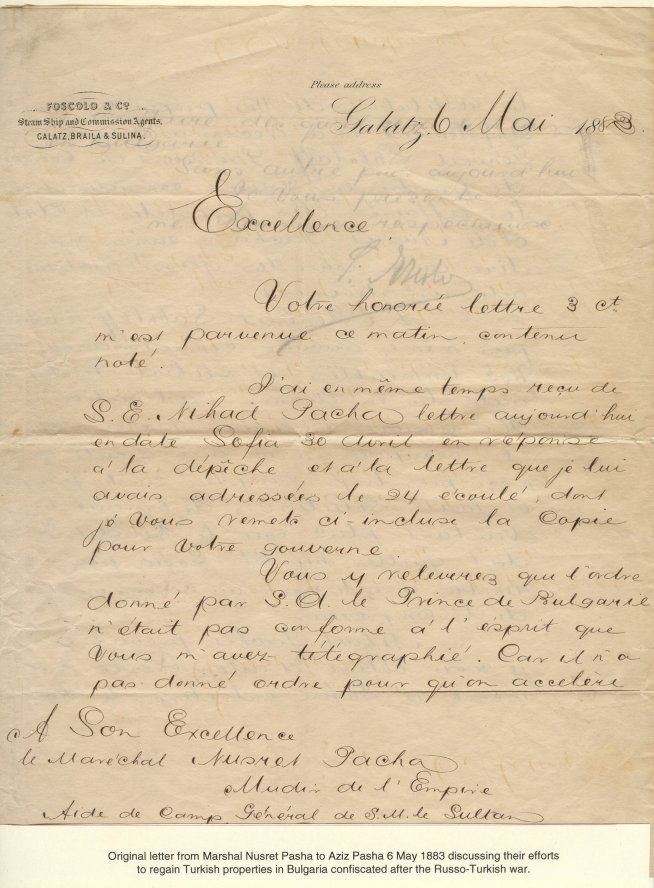 Please address
FOSCOLO & Cº
Steam Ship and Commission Agents,
GALATZ, BRAILA & SULINA.
Galatz, 6 Mai 1883.
Excellence
Votre honorée lettre 3 ct.
m'est parvenue ce matin, contenu
noté.
J'ai en même temps reçu de
S. E. Nihad Pacha lettre aujourd'hui
en date Sofia 30 Avril en réponse
à la dépêche et à la lettre que je lui
avais adressées le 24 écoulé, dont
je Vous remets ci-incluse la Copie
pour Votre gouverne.
Vous y releverez que l'ordre
donné par S. A. le Prince de Bulgarie
n'était pas conforme à l'esprit que
Vous m'avez télégraphié. Car il n'a
pas donné ordre pour qu'on accelère
A Son Excellence
le Maréchal Nusret Pacha
Mudir de l'Empire
Aide de Camp Général de S. M. le Sultan
Original letter from Marshal Nusret Pasha to Aziz Pasha 6 May 1883 discussing their efforts
to regain Turkish properties in Bulgaria confiscated after the Russo-Turkish war.